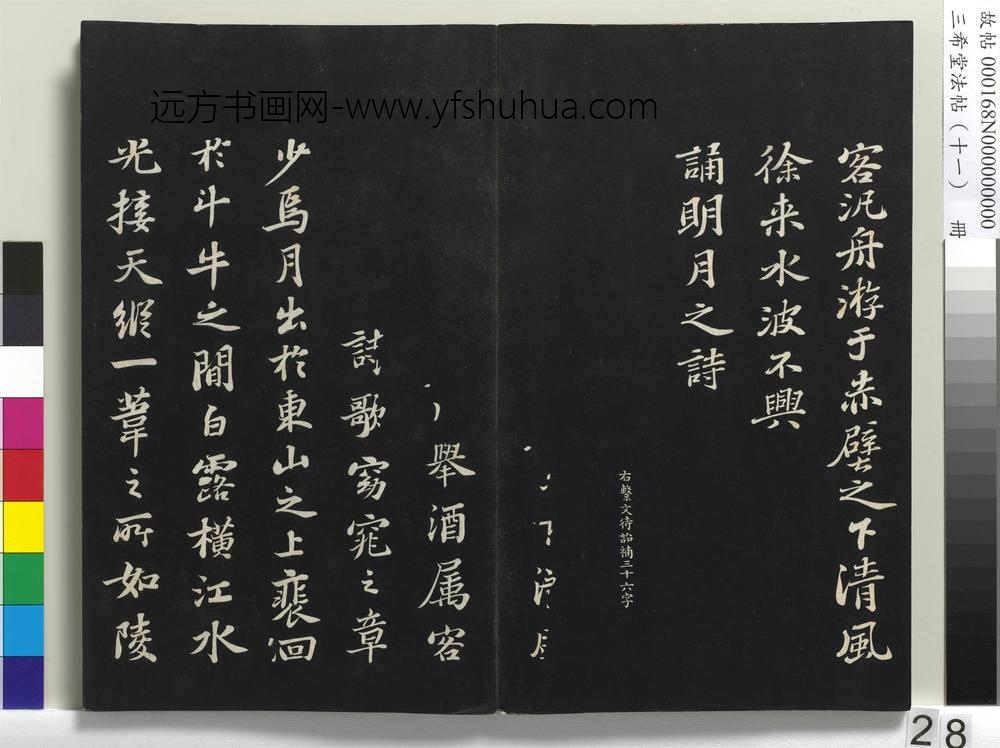 客汎舟游于赤壁之下清風
徐来水波不興
誦明月之詩
右繫文待詔補三十六字
舉酒属客
誦歌窈窕之章
少焉月出於東山之上裵洄
於斗牛之間白露橫江水
光接天縱一葦之所如陵
远方书画网-www.yfshuhua.com
故帖 000168N000000000
三希堂法帖（十一） 冊
28